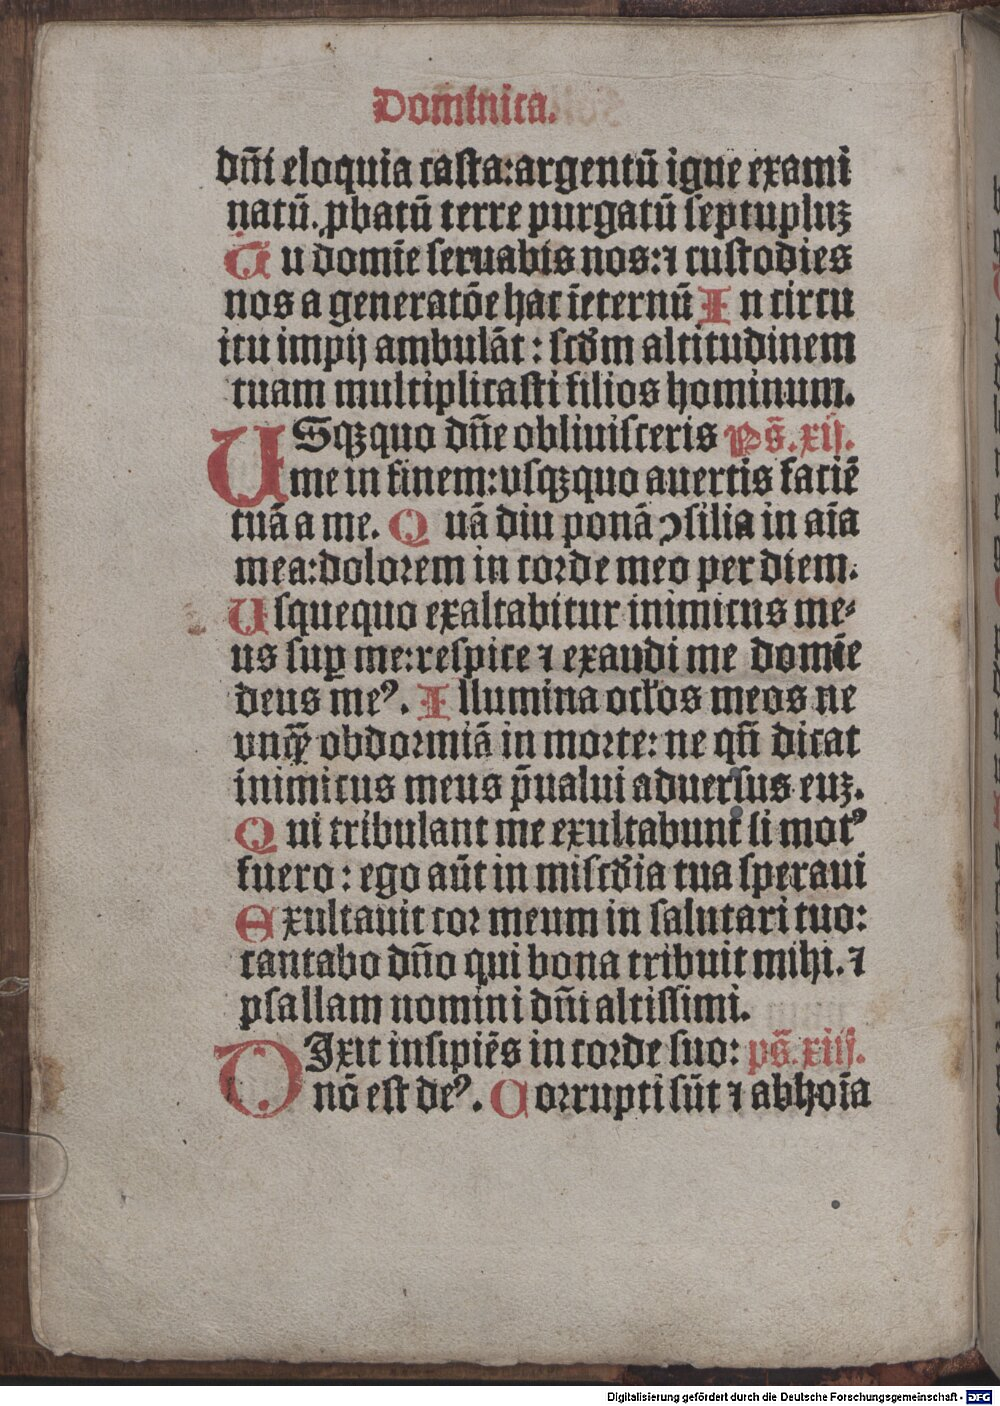 Dominica.
dñi eloquia casta:argentũ igne exami
natũ. ꝓbatũ terre purgatũ septupluꝫ
Tu domīe seruabis nos:⁊ custodies
nos a generatōe hac īeternũ In circu
itu impij ambulāt : scďm altitudinem
tuam multiplicasti filios hominum.
USqꝫquo dñe obliuisceris Ps̄.xij.
me in finem:vsqꝫquo auertis faciē
tuā a me. Quā diu ponā ꝯsilia in aīa
mea:doloꝛem in coꝛde meo per diem.
Usquequo exaltabitur inimicus me⸗
us suꝑ me:respice ⁊ exaudi me domīe
deus meꝰ. Illumina ocľos meos ne
vnqꝫ̄ obdoꝛmiā in moꝛte: ne qñ dicat
inimicus meus p̄ualui aduersus euꝫ.
Qui tribulant me exultabunt si motꝰ
fuero : ego aũt in miscďia tua speraui
Exultauit coꝛ meum in salutari tuo:
cantabo dño qui bona tribuit mihi. ⁊
psallam nomini dñi altissimi.
DIxit insipiēs in coꝛde suo: ps̄.xiij.
nō est deꝰ. Coꝛrupti sũt ⁊ abhoīa
Digitalisierung gefördert durch die Deutsche Forschungsgemeinschaft - DFG